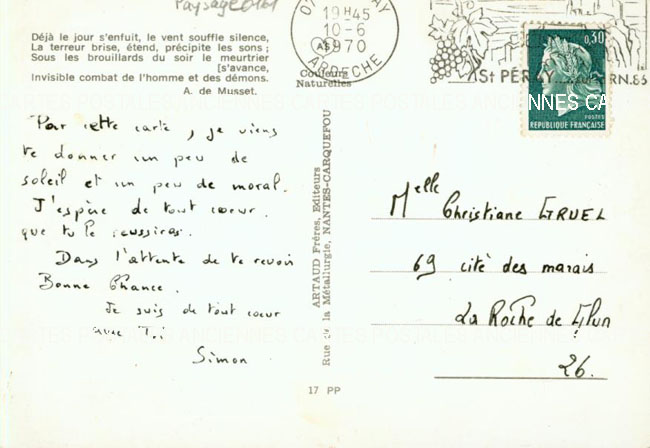 Paysage
Déjà le jour s'enfuit, le vent souffle silence,
La terreur brise, étend, précipite les sons ;
Sous les brouillards du soir le meurtrier
[s'avance,
Invisible combat de l'homme et des démons.
A. de Musset.
19H45
10-6
1970
ARDECHE
Couleurs
Naturelles
ST PÉRAY
RN.86
0,30
POSTES
REPUBLIQUE FRANÇAISE
CARTES POSTALES ANCIENNES
Par cette carte, je viens
te donner un peu de
soleil et un peu de moral.
J'espère de tout coeur.
que tu le reussiras.
Dans l'attente de te revoir
Bonne Chance.
Je suis de tout cœur
avec Toi
Simon
ARTAUD Frères, Editeurs
Rue de la Métallurgie, NANTES-CARQUEFOU
17 PP
Melle Christiane GRUEL
69 cité des marais
La Roche de Glun
26.